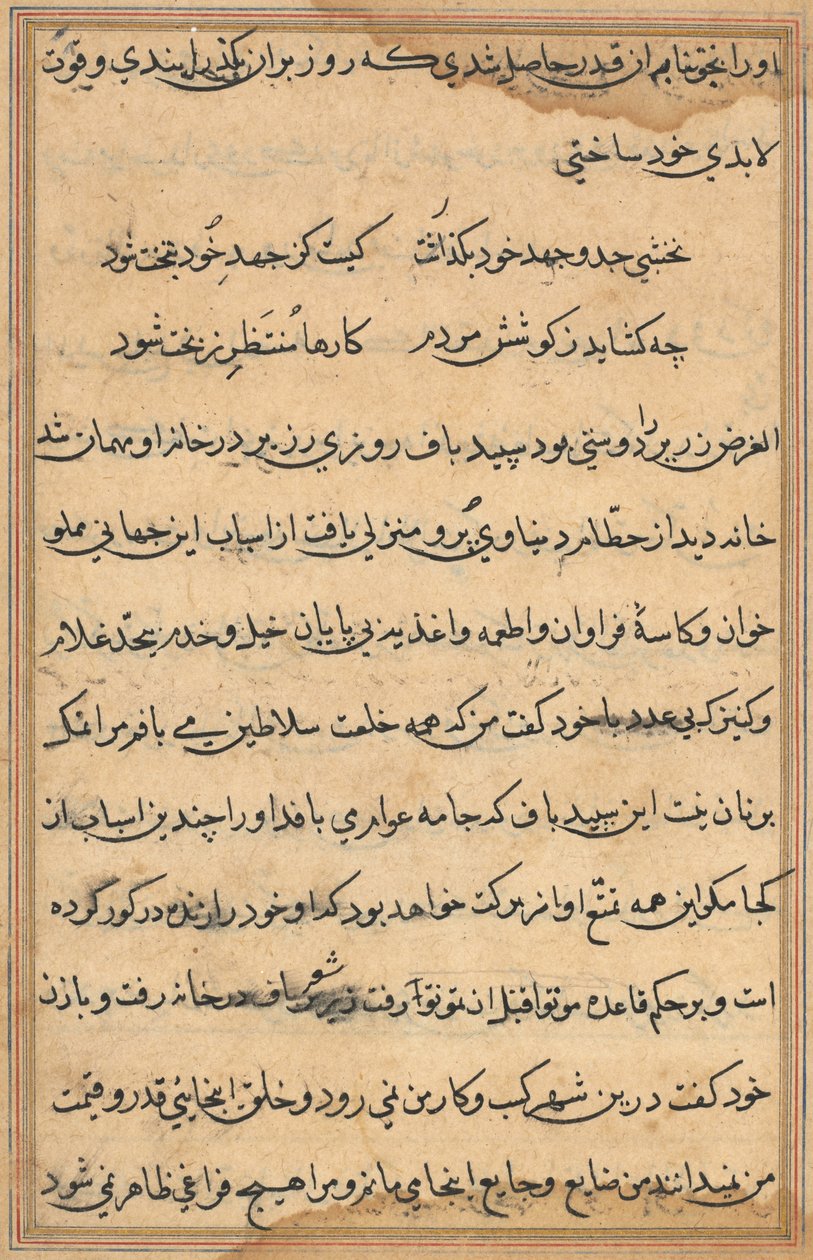 او را بجوشنا بم ان قدر حاصل شدي که روز بران بگذرانيدي و قوّت
لابدي خود ساختي
نخشبي جد و جهد خود بگذاشت کيست کز جهدِ خُود بتخت شود
چه کشايد ز کوشش مردم کارها مُنتَظَرِ ز بخت شود
الغرض زرير را دوستي بود سپيد باف روزي زرير در خانه او مهمان شد
خانه ديد از حطّام دنياوي پُر و منزلي يافت از اسباب اين جهاني مملو
خوان و کاسهٔ فراوان و اطعمه و اغذيه بي پايان خيل و خدم بيحدّ غلام
و کنيزک بي عدد با خود گفت من که همه خلعت سلاطين مي بافم مرا نمک
بر نان نيست اين سپيد باف که جامه عوام مي بافد او را چندين اسباب از
کجا مکر اين همه تمتّع او از برکت خواهد بود که او خود را زنده در کور کرده
است و بر حکم قاعده موتوا قبل ان تموتوا رفت زرير شعر باف در خانه رفت و با زن
خود گفت درين شهر کسب و کار من نمي رود و خلق اينجايئي قدر و قيمت
من نميدانند من ضايع و جايع اينجا مي مانم و مرا هيچ فراغي ظاهر نمي شود